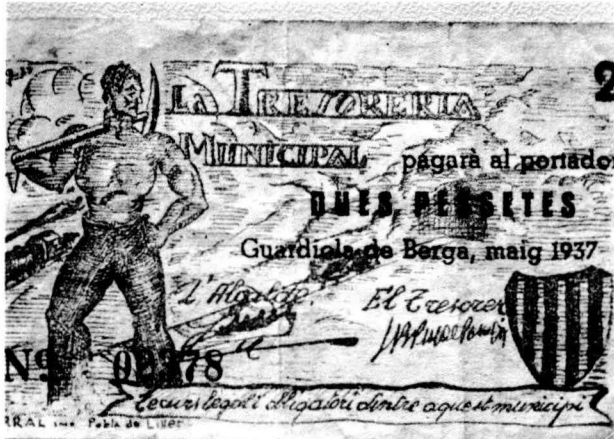 2
LA TRESORERIA
MUNICIPAL pagarà al portador
DUES PESSETES
Guardiola de Berga, maig 1937
L'Alcalde. El Tresorer
Nº
De curs legal i obligatori dintre aquest municipi
RRAL imp. Pobla de Lillet